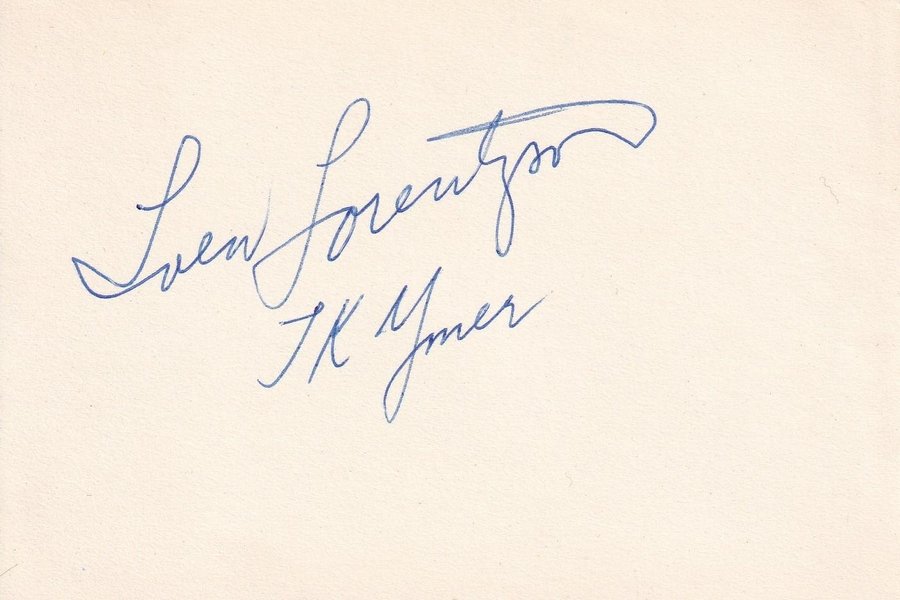 Sven Lorentzson
IK Ymer